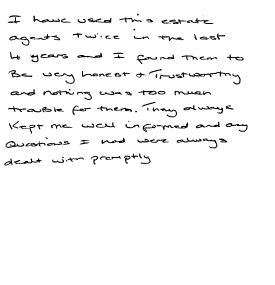 I have used this estate
agents twice in the last
4 years and I found them to
Be very honest & Trustworthy
and nothing was too much
trouble for them. They always
Kept me well informed and any
Questions I had were always
dealt with promptly